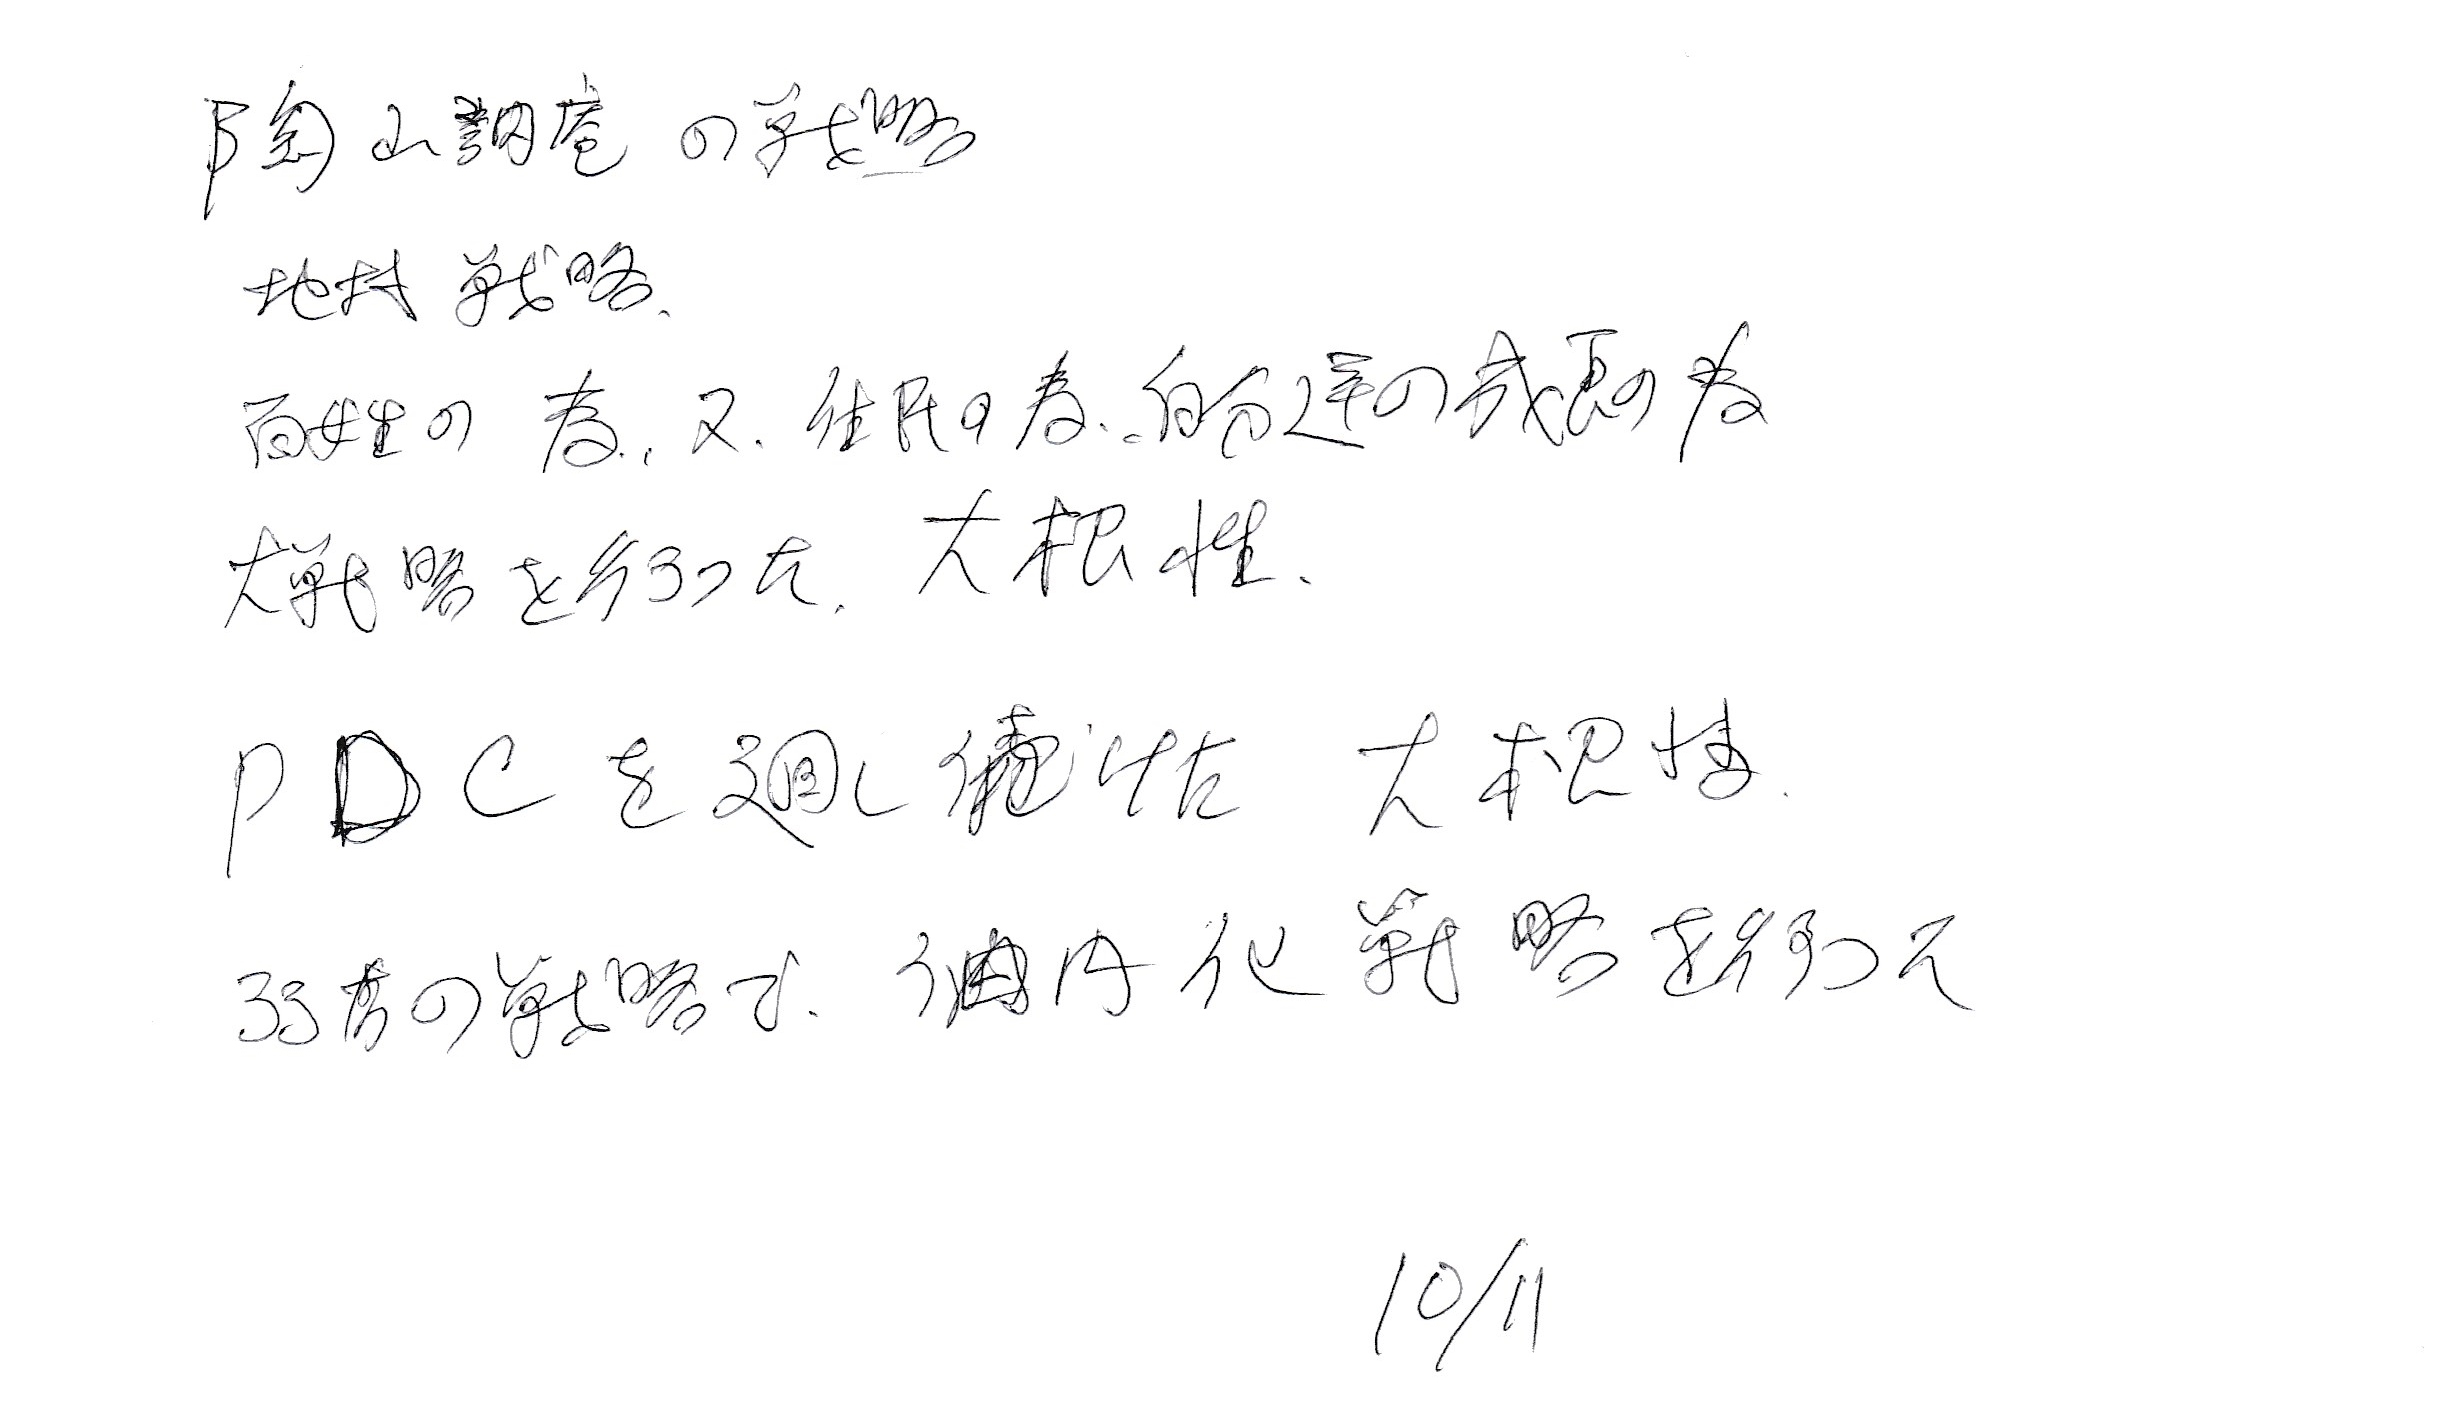 陶山訥庵の戦略
地村戦略、
百姓の為、又、住民の為、自分達の成長の為
大戦略を行った、大根性、
PDCを廻し続けた 大根性、
弱者の戦略で、 化戦略を行って
10/11